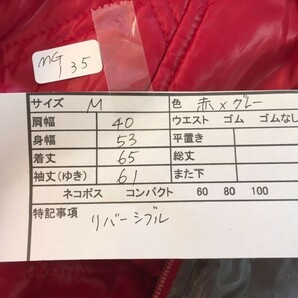 MG
135
サイズ M 色 赤×グレー
肩幅 40 ウエスト ゴム ゴムなし
身幅 53 平置き
着丈 65 総丈
袖丈(ゆき) 61 また下
ネコポス コンパクト 60 80 100
特記事項
リバーシブル